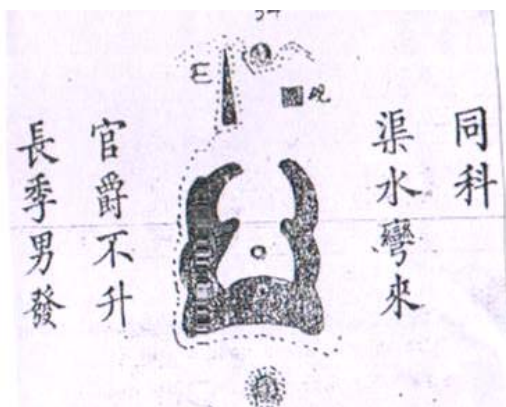 同科
渠水彎來
官爵不升
長季男發